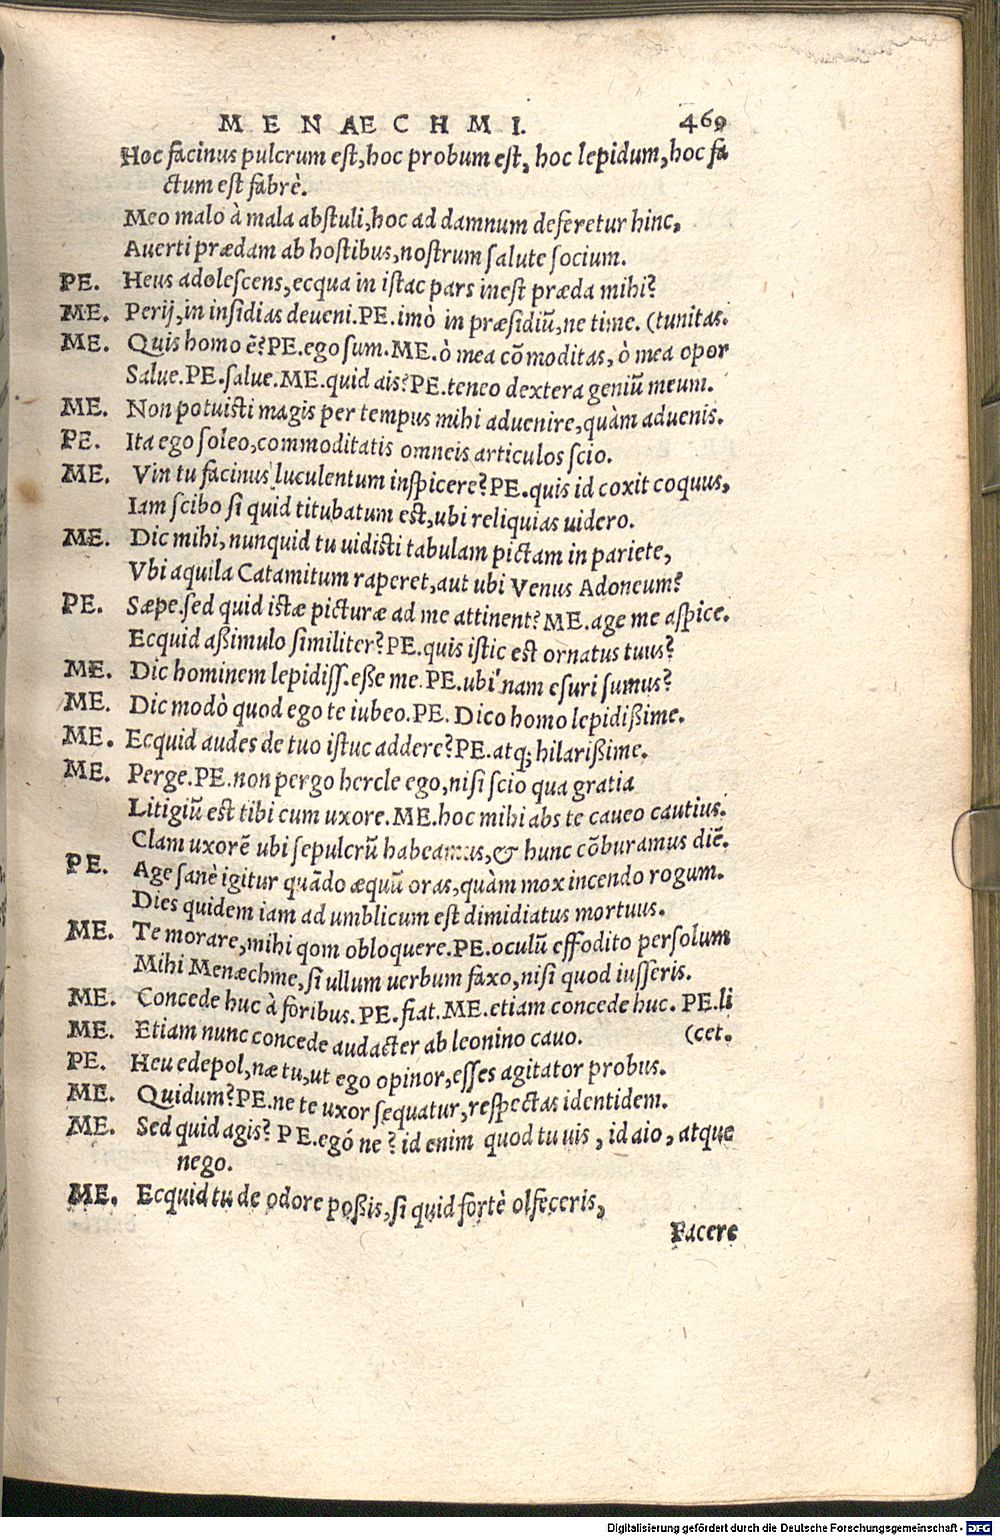 MENAECHMI. 469
Hoc facinus pulcrum est, hoc probum est, hoc lepidum, hoc fa
ctum est fabrè.
Meo malo à mala abstuli, hoc ad damnum deferetur hinc,
Auerti prædam ab hostibus, nostrum salute socium.
PE. Heus adolescens, ecqua in istac pars inest præda mihi?
ME. Perij, in insidias deueni. PE. imò in præsidiũ, ne time. (tunitas.
ME. Quis homo ẽ? PE. ego sum. ME. ò mea cõmoditas, ò mea opor
Salue. PE. salue. ME. quid ais? PE. teneo dextera geniũ meum.
ME. Non potuisti magis per tempus mihi aduenire, quàm aduenis.
PE. Ita ego soleo, commoditatis omneis articulos scio.
ME. Vin tu facinus luculentum inspicere? PE. quis id coxit coquus,
Iam scibo si quid titubatum est, ubi reliquias uidero.
ME. Dic mihi, nunquid tu uidisti tabulam pictam in pariete,
Vbi aquila Catamitum raperet, aut ubi Venus Adoneum?
PE. Sæpe. sed quid istæ picturæ ad me attinent? ME. age me aspice.
Ecquid aßimulo similiter? PE. quis istic est ornatus tuus?
ME. Dic hominem lepidiss. eße me. PE. ubi nam esuri sumus?
ME. Dic modò quod ego te iubeo. PE. Dico homo lepidißime.
ME. Ecquid audes de tuo istuc addere? PE. atq; hilarißime.
ME. Perge. PE. non pergo hercle ego, nisi scio qua gratia
Litigiũ est tibi cum uxore. ME. hoc mihi abs te caueo cautius.
Clam uxorẽ ubi sepulcrũ habeamus, & hunc cõburamus diẽ.
PE. Age sanè igitur quãdo æquũ oras, quàm mox incendo rogum.
Dies quidem iam ad umblicum est dimidiatus mortuus.
ME. Te morare, mihi qom obloquere. PE. oculũ effodito per solum
Mihi Menæchme, si ullum uerbum faxo, nisi quod iusseris.
ME. Concede huc à foribus. PE. fiat. ME. etiam concede huc. PE. li
ME. Etiam nunc concede audacter ab leonino cauo. (cet.
PE. Heu edepol, næ tu, ut ego opinor, esses agitator probus.
ME. Quidum? PE. ne te uxor sequatur, respectas identidem.
ME. Sed quid agis? PE. egó ne? id enim quod tu uis, id aio, atque
nego.
ME. Ecquid tu de odore poßis, si quid fortè olfeceris,
Facere
Digitalisierung gefördert durch die Deutsche Forschungsgemeinschaft - DFG